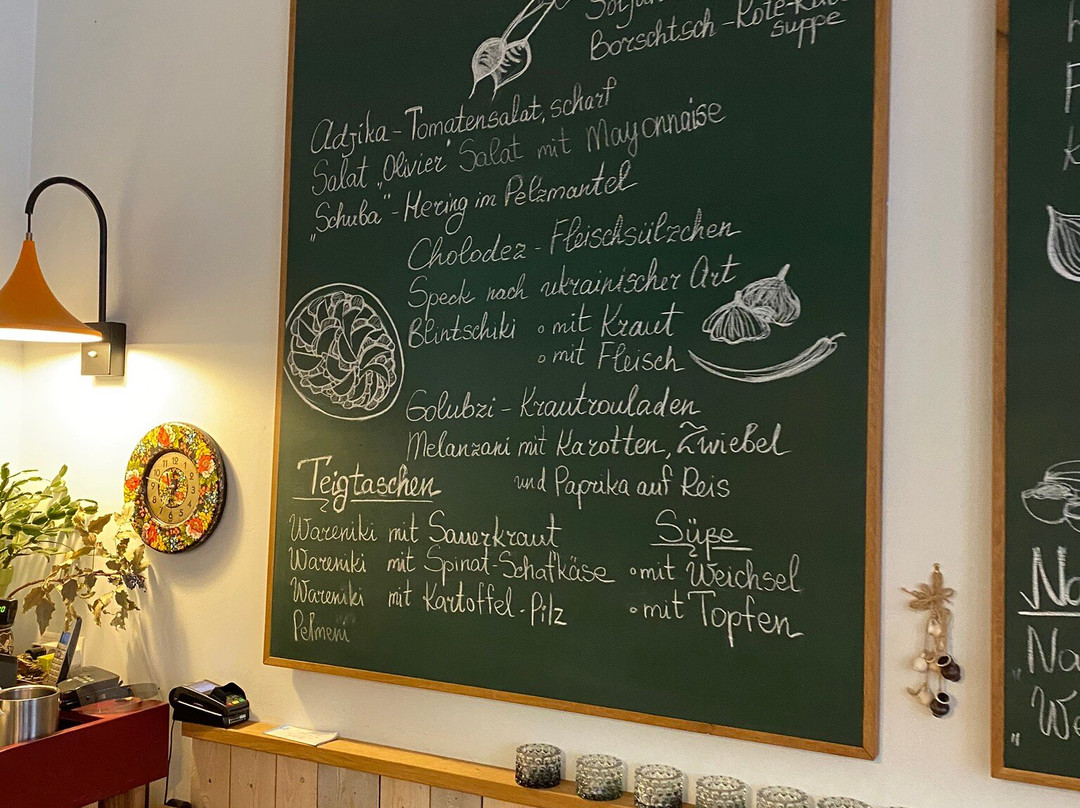 Borschtsch - Rote-
suppe
Adzika - Tomatensalat, scharf
Salat „Olivier" Salat mit Mayonnaise
„Schuba" - Hering im Pelzmantel
Cholodez - Fleischsülzchen
Speck nach ukrainischer Art
Blintschiki ∘ mit Kraut
∘ mit Fleisch
Golubzi - Krautrouladen
Melanzani mit Karotten, Zwiebel
und Paprika auf Reis
Teigtaschen
Wareniki mit Sauerkraut
Wareniki mit Spinat-Schafkäse
Wareniki mit Kartoffel-Pilz
Pelmeni
Süße
∘ mit Weichsel
∘ mit Topfen